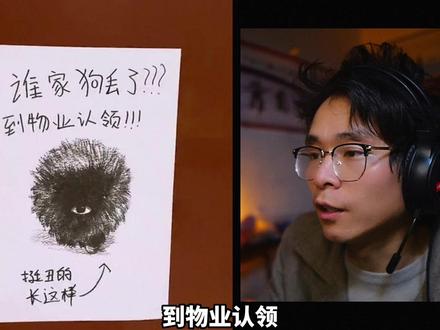 谁家狗丢了???
到物业认领!!!
挺丑的
长这样
到物业认领